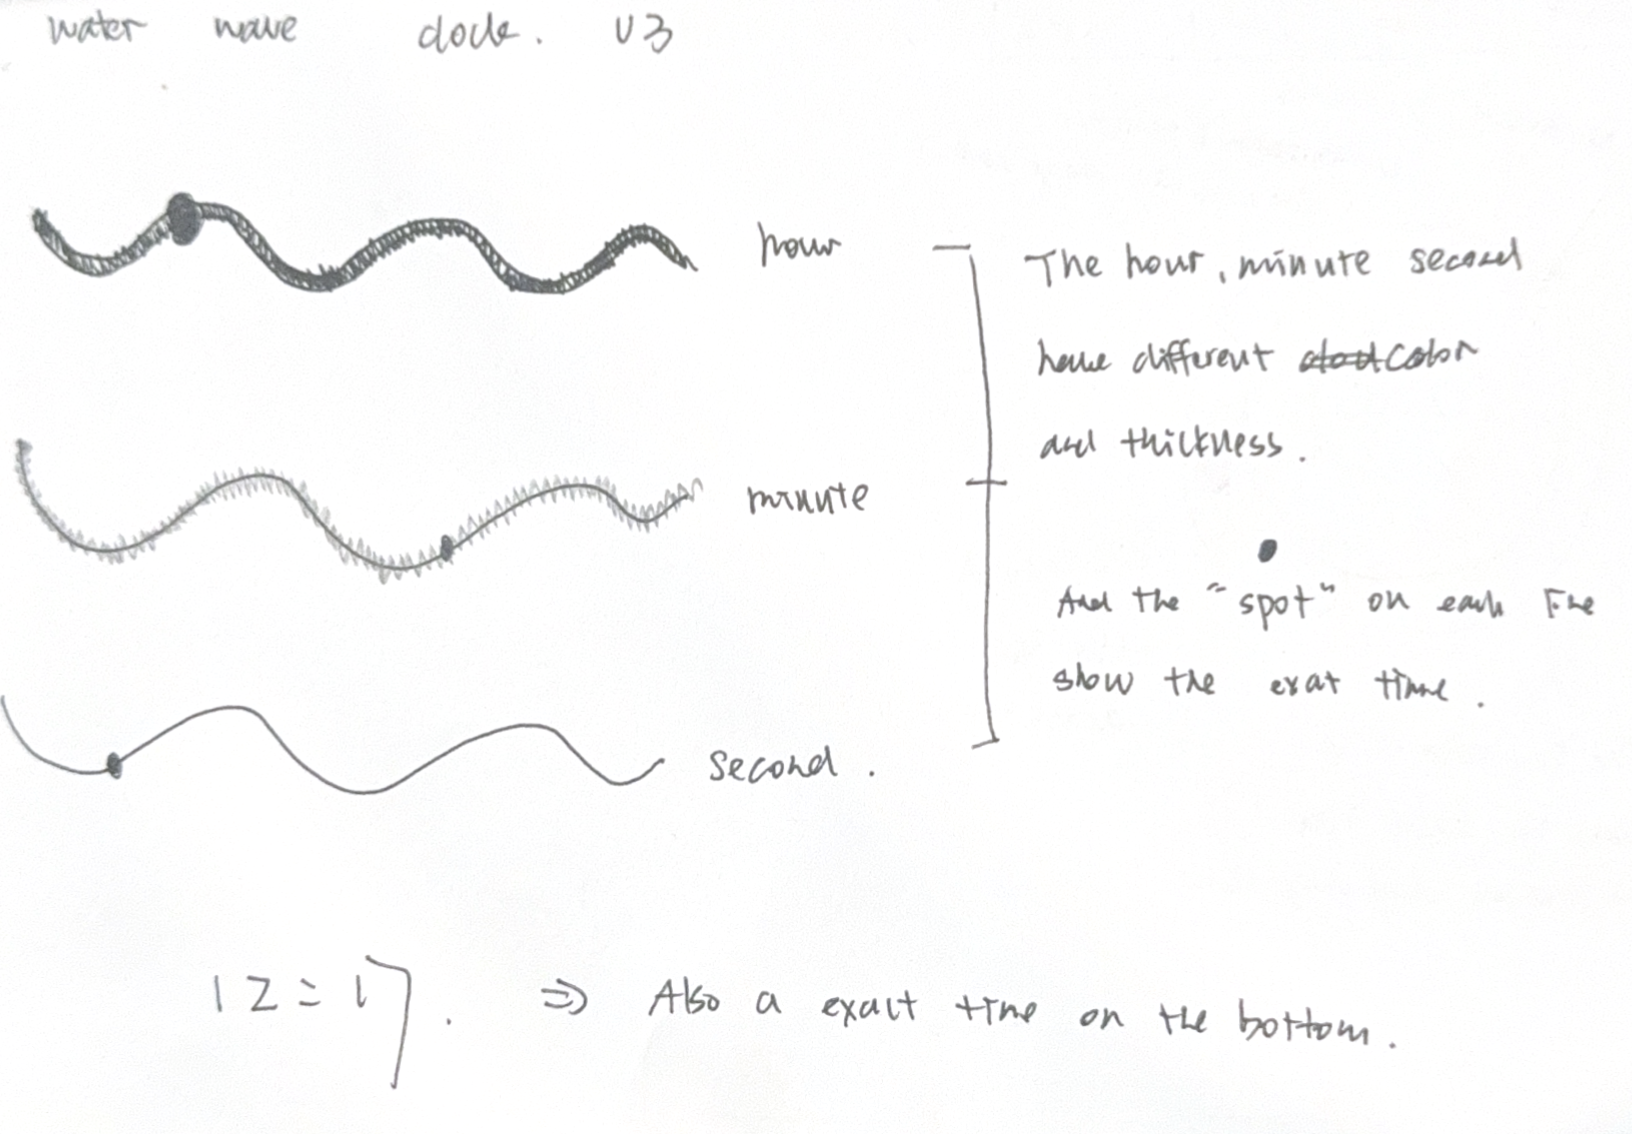 water wave clock. V3
hour
The hour, minute second
have different color
and thickness.
minute
And the "spot" on each line
show the exat time.
second.
12:17. ⇒ Also a exact time on the bottom.